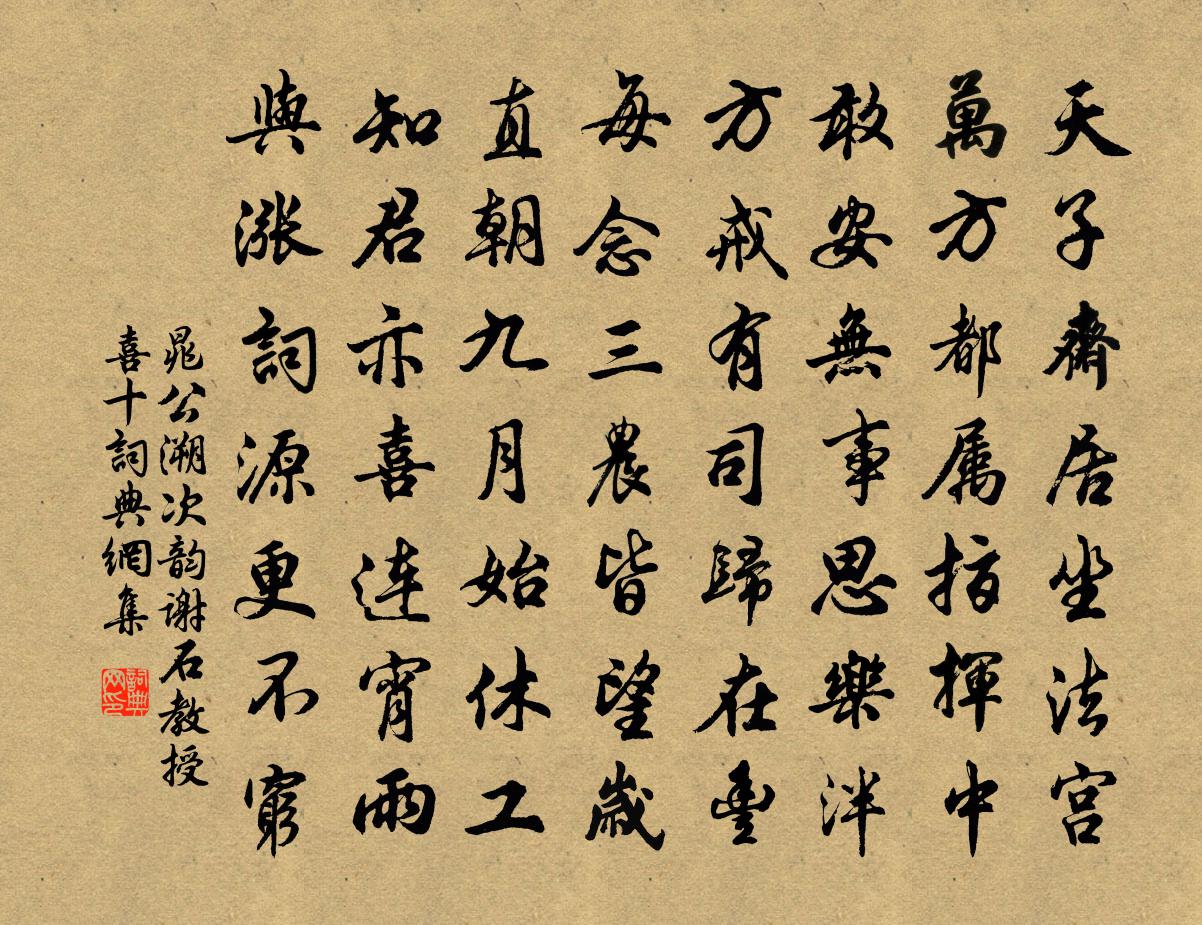 天子齋居坐法宮
萬方都屬指揮中
敢安無事思樂泮
方戒有司歸在豐
每念三農皆望歲
直朝九月始休工
知君亦喜連宵雨
與漲詞源更不窮
晁公溯次韵謝石教授
喜十詞典網集
詞典网印